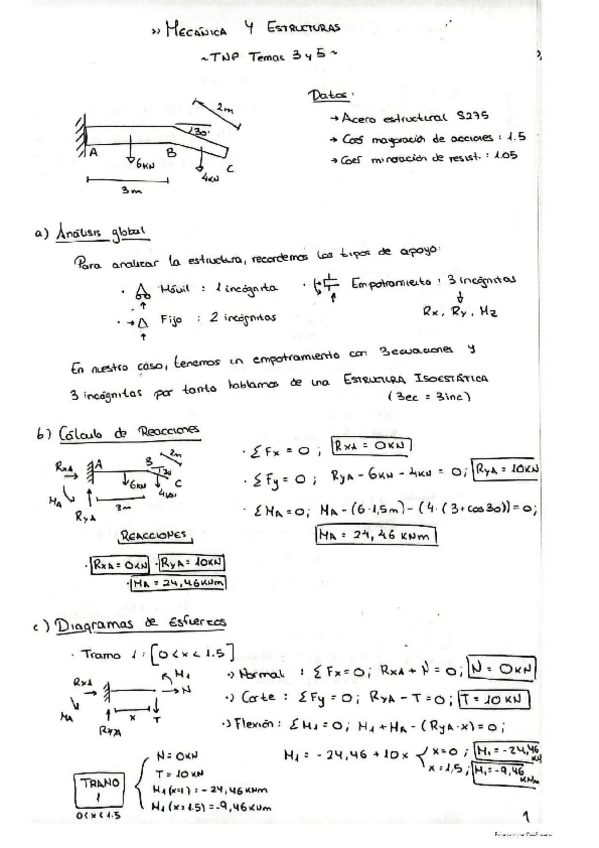 » MECÁNICA Y ESTRUCTURAS
~TNP Temas 3 y 5~
Datos:
→ Acero estructural S275
→ Coef mayoración de acciones: 1.5
→ Coef minoración de resist.: 1.05
2m
30°
A
6KN
B
4KN
C
3m
a) Análisis global
Para analizar la estructura, recordemos los tipos de apoyo:
· Móvil : 1 incógnita · Empotramiento : 3 incógnitas
· Fijo : 2 incógnitas
Rx, Ry, Mz
En nuestro caso, tenemos un empotramiento con 3 ecuaciones y
3 incógnitas por tanto hablamos de una ESTRUCTURA ISOESTÁTICA
(3ec = 3inc)
b) Cálculo de Reacciones
RxA A B 2m
6KN 4KN C
MA RyA 3m
· ΣFx = 0 ; RxA = 0KN
· ΣFy = 0 ; RyA - 6KN - 4KN = 0 ; RyA = 10KN
· ΣMA = 0 ; MA - (6·1,5m) - (4·(3+cos30)) = 0 ;
MA = 24,46 KNm
REACCIONES
· RxA = 0KN · RyA = 10KN
· MA = 24,46KNm
c) Diagramas de Esfuerzos
· Tramo 1 : [0 < x < 1.5]
RxA M1 N
MA x T
RyA
·) Normal : ΣFx = 0 ; RxA + N = 0 ; N = 0KN
·) Corte : ΣFy = 0 ; RyA - T = 0 ; T = 10KN
·) Flexión : ΣM1 = 0 ; M1 + MA - (RyA·x) = 0 ;
M1 = -24,46 + 10x x=0 ; M1 = -24,46
x=1,5 ; M1 = -9,46
TRAMO
1
0<x<1.5
N = 0KN
T = 10KN
M1 (x=1) = -24,46KNm
M1 (x=1.5) = -9,46KNm
1